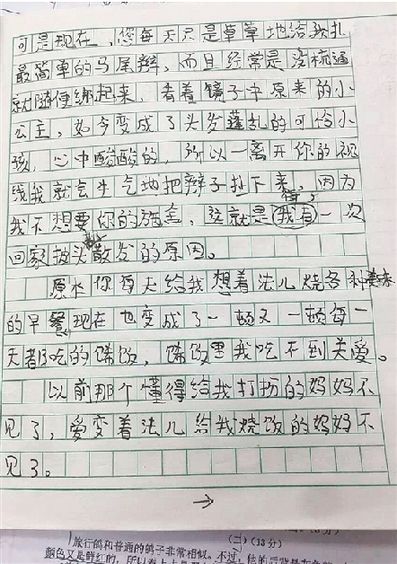 可是现在，您每天只是草草地给我扎
最简单的马尾辫，而且经常是没梳通
就随便绑起来，看着镜子中原来的小
公主，如今变成了头发蓬乱的可怜小
孩，心中酸酸的，所以一离开你的视
线我就会生气地把辫子扯下来，因为
我不想要你的施舍，这就是我有一次
回家披头散发的原因。
原来你每天给我想着法儿烧各种美味
的早餐现在也变成了一顿又一顿每一
天都吃的馊饭，馊饭里我吃不到关爱。
以前那个懂得给我打扮的妈妈不
见了，爱变着法儿给我烧饭的妈妈不
见了。
→
(二)(13分)
旅行鸽和普通的鸽子非常相似。不过，他的
颜色又是鲜红的，所以